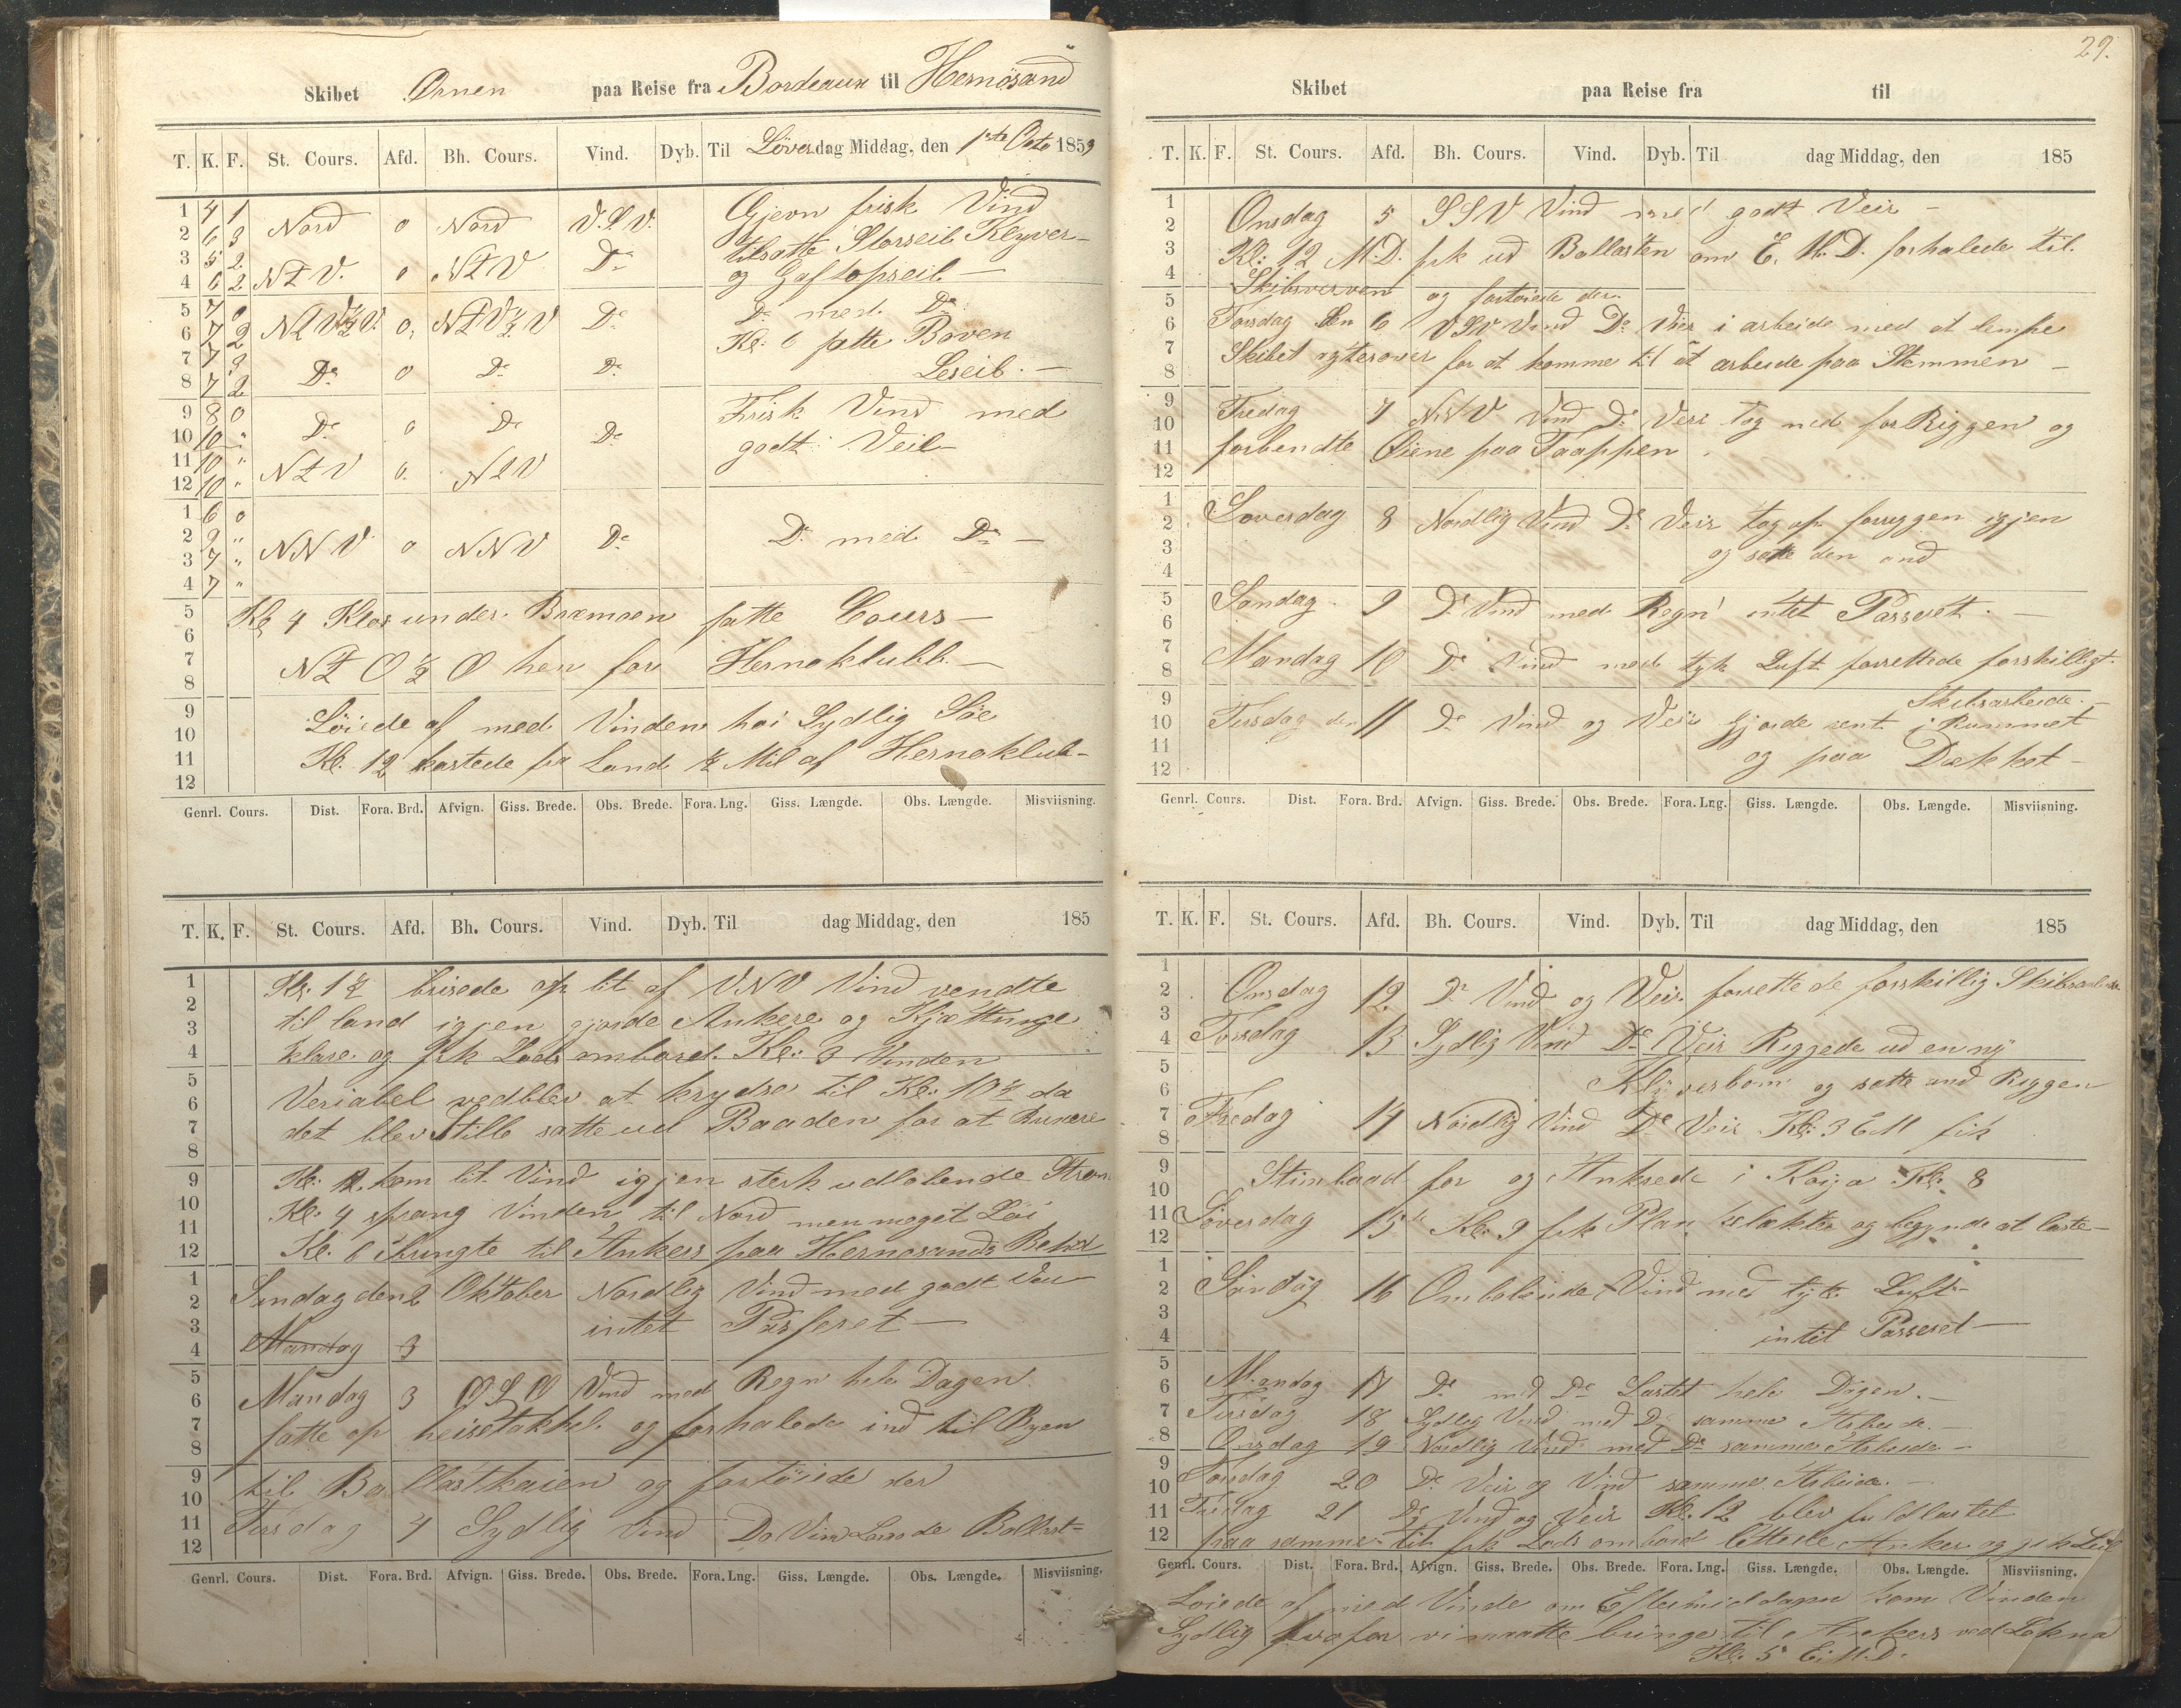 Skibet Ørnen paa Reise fra Bordeaux til Hernösand
T. K. F. St. Cours. Afd. Bh. Cours. Vind. Dyb. Til Löverdag Middag, den 1ste Octo 1859
1 4 1 Nord 0 Nord V.S.V. Gjevn frisk Vind
2 6 3 tilsatte Storseil Klyver
3 5 2 NtV. 0 NtV Do og Gaftopseil
4 6 2
5 7 0 NtV½V. 0 NtV½V Do Do med Do
6 7 2 Kl: 6 satte Boven
7 7 3 Do 0 Do Do Leseil.
8 7 2
9 8 0 Do 0 Do Do Frisk Vind med
10 10 " godt Veir
11 10 " NtV 0 NtV
12 10 "
1 6 0
2 9 " NNV 0 NNV Do Do med Do
3 7 "
4 7 "
5 Kl 4 Klos under Bræmoen satte Cours
6
7 NtO½O hen for Hernoklubb.
8
9 Löiede af med Vinden hoi Sydlig Söe
10
11 Kl. 12 kastede fra Land ½ Mil af Hernoklub
12
Genrl. Cours. Dist. Fora. Brd. Afvign. Giss. Brede. Obs. Brede. Fora. Lng. Giss. Længde. Obs. Længde. Misviisning.
T. K. F. St. Cours. Afd. Bh. Cours. Vind. Dyb. Til dag Middag, den 185
1 Kl: 1½ brisede op lit af VNV Vind vendte
2 til land igjen gjorde Ankere og Kjættinge
3
4 klare og fik Lods ombord. Kl: 3 Vinden
5
6 Veriabel vedblev at krydse til Kl: 10½ da
7 det blev Stille satte ud Baaden for at Buxere
8
9 Kl: 12 kom lit Vind igjen sterk udlobende Strøm
10 Kl: 4 sprang Vinden til Nord men meget Löi
11
12 Kl. 6 til Ankers paa Hernosands Rehd
1 Sundag den 2 Oktober Nordlig Vind med godt Veir
2
3 intet Passeret
4 Mandag 3
5
6 Mandag 3 OSO Vind med Regn hele Dagen
7 satte op heisetakkel og forhalede ind til Byen
8
9 til Ballastkaien og fortöiede der
10
11 Tirsdag 4 Sydlig Vind Do Vind Lossede Ballast
12
Genrl. Cours. Dist. Fora. Brd. Afvign. Giss. Brede. Obs. Brede. Fora. Lng. Giss. Længde. Obs. Længde. Misviisning.
29.
Skibet paa Reise fra til
T. K. F. St. Cours. Afd. Bh. Cours. Vind. Dyb. Til dag Middag, den 185
1
2 Onsdag 5 SSV Vind med godt Veir
3 Kl: 12 M.D. fik ud Ballasten om E.M.D. forhalede til
4 Skibsverven og fortoiede der.
5
6 Torsdag den 6 VSV Vind Do Veir i arbeide med at lempe
7 Skibet agterover for at komme til at arbeide paa Stemmen
8
9 Fredag 7 NNV Vind Do Veir tog ned forRiggen og
10
11 forbendte Öiene paa Taappen
12
1
2 Loverdag 8 Nordlig Vind Do Veir tog op forryggen igjen
3 og satte den and
4
5 Sondag 9 Do Vind med Regn intet Passeret
6
7 Mandag 10 Do Vind med tyk Luft forrettede forskilligt
8
9 Skibsarbeide
10 Tirsdag den 11 Do Vind og Veir gjorde rent i Rummet
11 og paa Dækket
12
Genrl. Cours. Dist. Fora. Brd. Afvign. Giss. Brede. Obs. Brede. Fora. Lng. Giss. Længde. Obs. Længde. Misviisning.
T. K. F. St. Cours. Afd. Bh. Cours. Vind. Dyb. Til dag Middag, den 185
1
2 Onsdag 12. Do Vind og Veir forrettede forskillig Skibsarbeide
3
4 Torsdag 13 Sydlig Vind Do Veir Riggede ud en ny
5
6 Klyverbom og satte and Riggen
7 Fredag 14 Nordlig Vind Do Veir Kl: 3 EM fik
8
9 Stimbaad for og Ankrede i Kl: 8
10
11 Loverdag 15de Kl: 9 fik Plan og begynde at laste
12
1
2 Söndag 16 Ombolende Vind med tyk Luft
3
4 intet Passeret
5
6 Mandag 17 Do med Do Lastet hele Dagen.
7 Tirsdag 18 Sydlig Vind med Do samme Arbeide
8 Onsdag 19 Nordlig Vind med Do samme Arbeide
9
10 Torsdag 20 Do Veir og Vind samme Arbeide
11 Fredag 21 Do Vind og Veir Kl. 12 blev fuldlastet
12 paa samme tid fik Lods ombord lettede Anker og gik Seil
Genrl. Cours. Dist. Fora. Brd. Afvign. Giss. Brede. Obs. Brede. Fora. Lng. Giss. Længde. Obs. Længde. Misviisning.
Loiede af med Vinde om Eftermiddagen kom Vinden
Sydlig hvorfor vi maatte bringe til Ankers ved
Kl: 5 E.M.D.